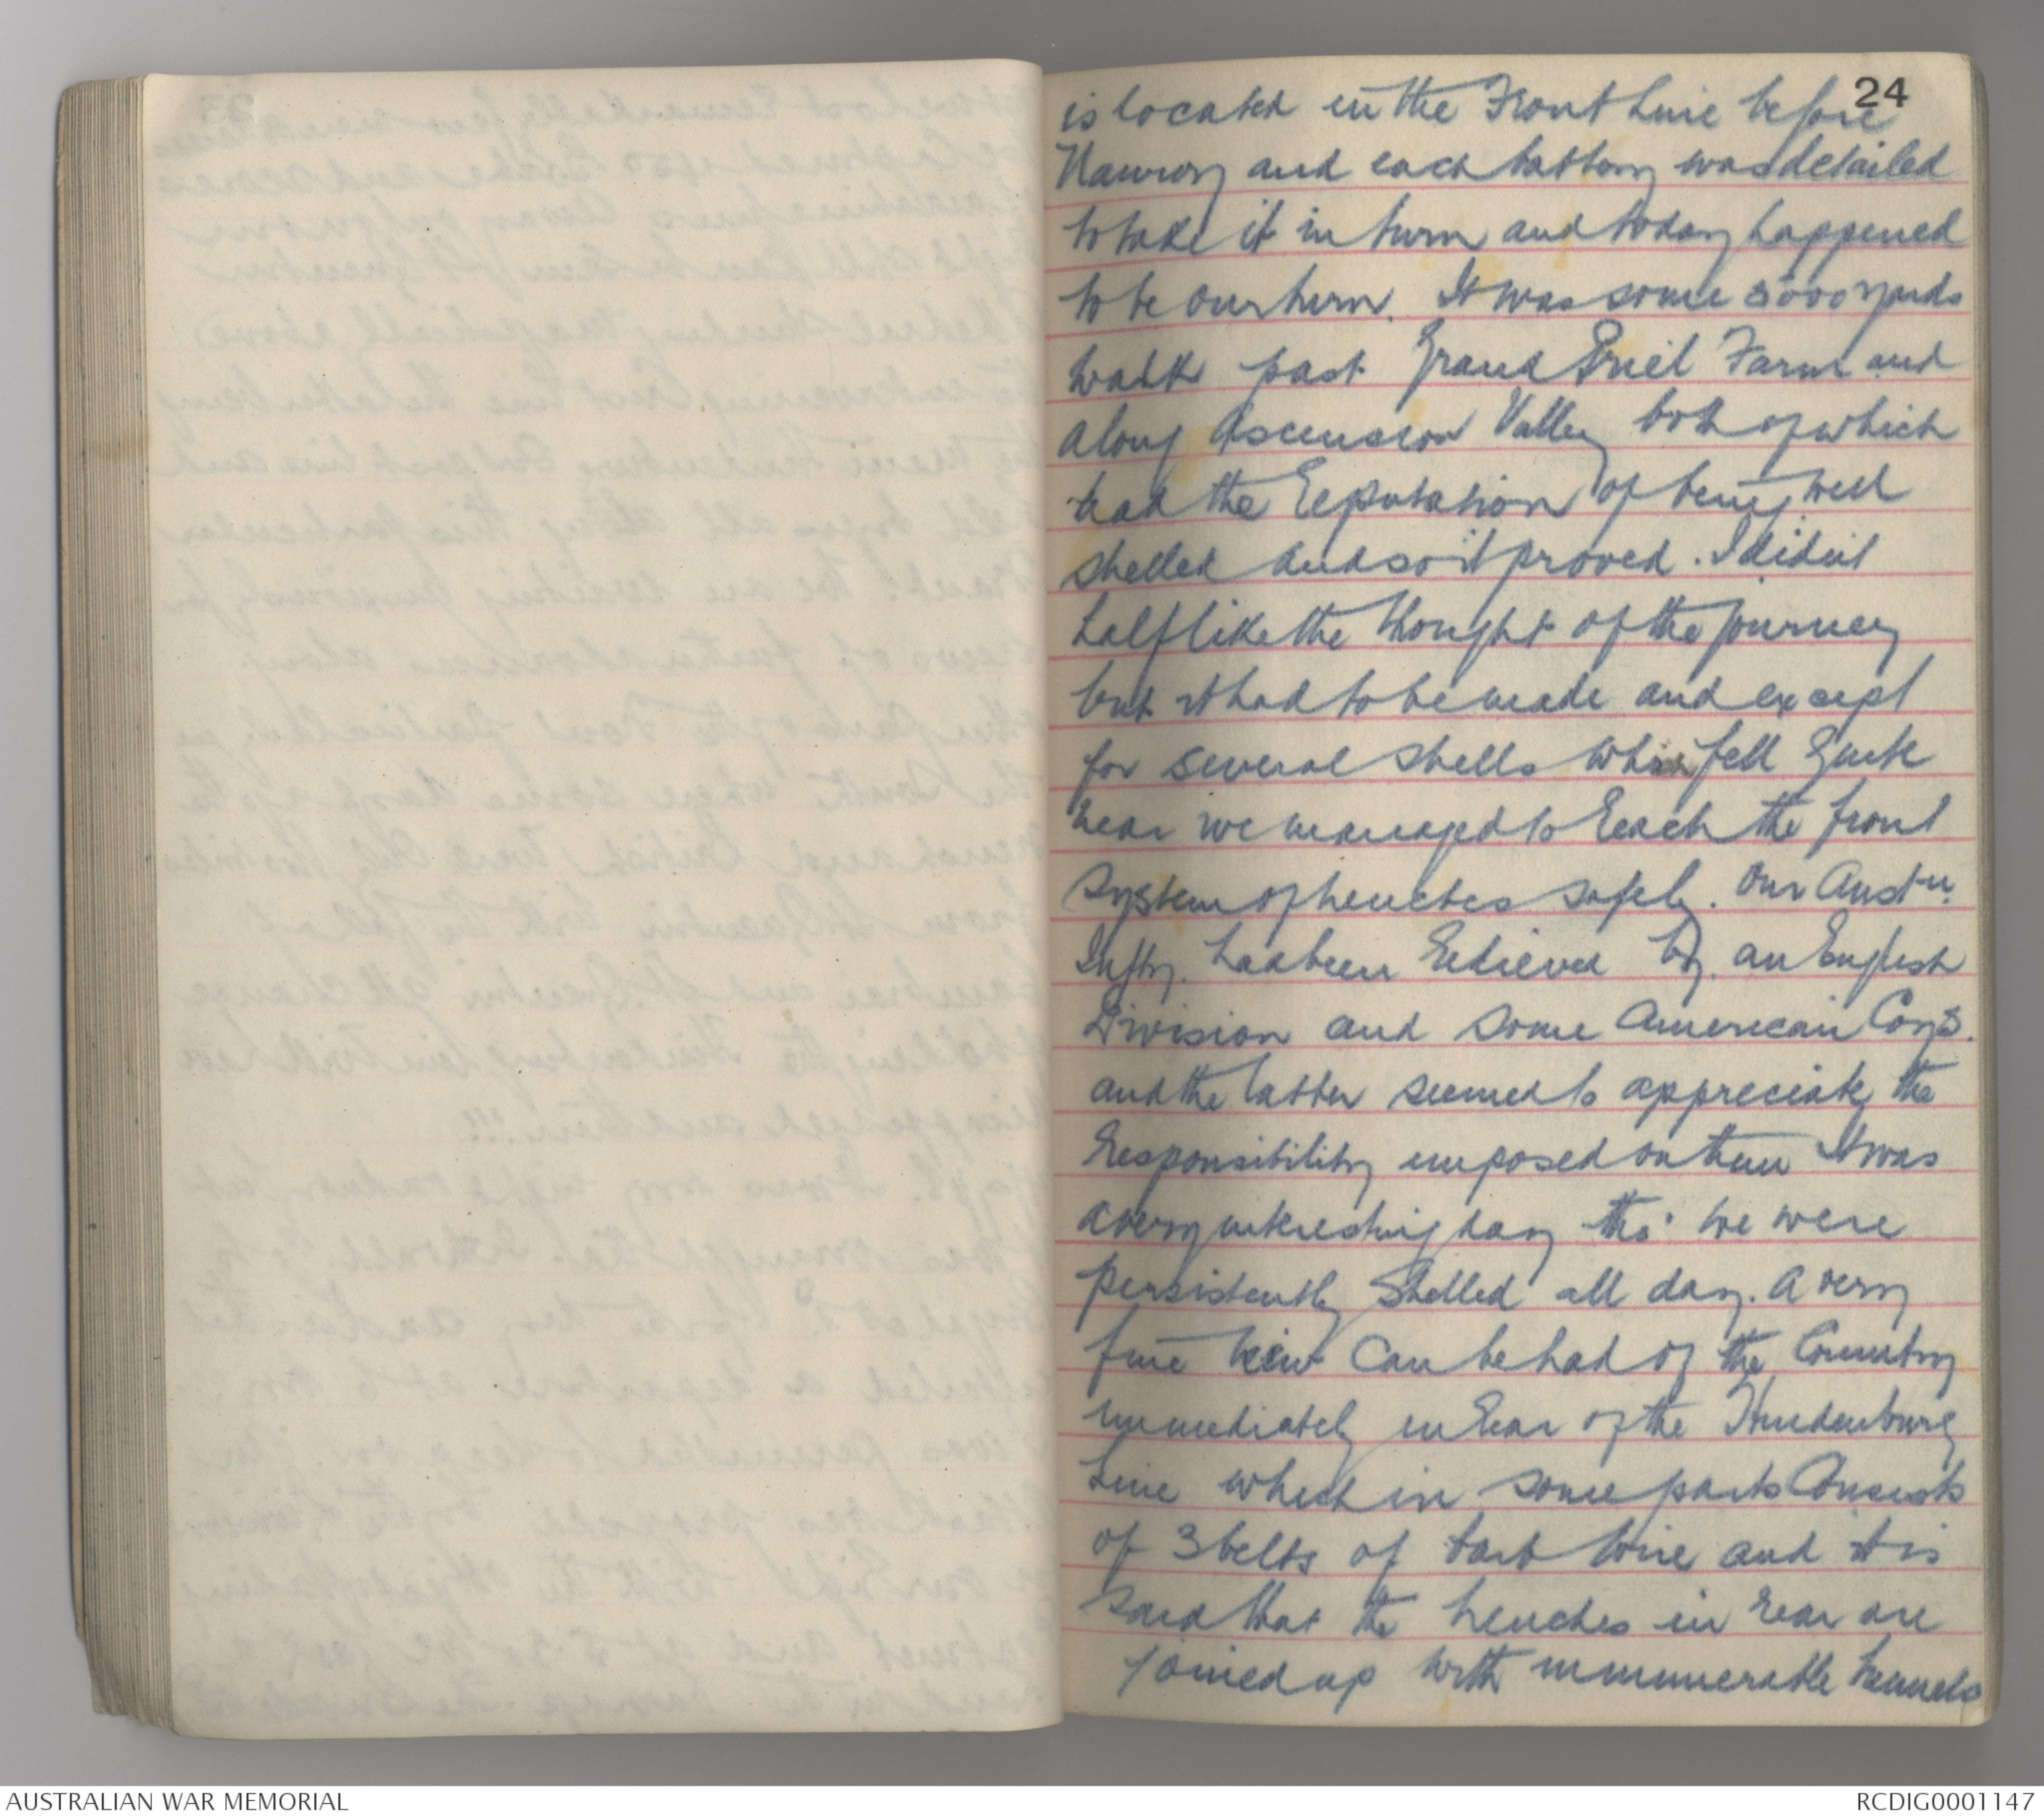 24
is located in the Front Line before
Nauroy and each battery was detailed
to take it in turn and today happened
to be our turn. It was some 5000 yards
walk past Grand Priel Farm and
along Ascension Valley both of which
had the reputation of being well
shelled and so it proved. I didn't
half like the thought of the journey
but it had to be made and except
for several shells which fell quite
near we managed to reach the front
system of trenches safely. Our Austn.
Inftry. had been relieved by an English
Division and some American Corps.
and the latter seemed to appreciate the
responsibility imposed on them It was
a very interesting day tho' we were
persistently shelled all day. A very
fine view can be had of the Country
immediately in rear of the Hindenburg
Line which in some parts Consists
of 3 belts of barb wire and it is
said that the trenches in rear are
joined up with innumerable tunnels
AUSTRALIAN WAR MEMORIAL
RCDIG0001147